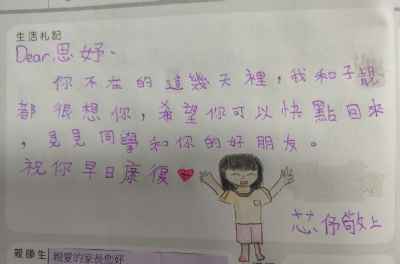 生活札記
Dear.思妤、
你不在的這幾天裡,我和子靚
都很想你,希望你可以快點回來
,見見同學和你的好朋友。
祝你早日康復
芯伃敬上
親師生
親愛的家長您好